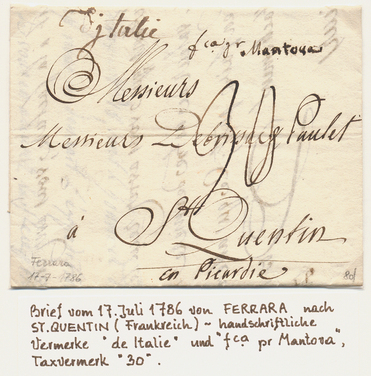 d'Italie
fca pr Mantova
Messieurs
30
Messieurs Paulet
à St Quentin
en Picardie
Ferrara
17-7-1786
Brief vom 17. Juli 1786 von FERRARA nach
ST. QUENTIN (Frankreich) - handschriftliche
Vermerke "de Italie" und "fca pr Mantova",
Taxvermerk "30".